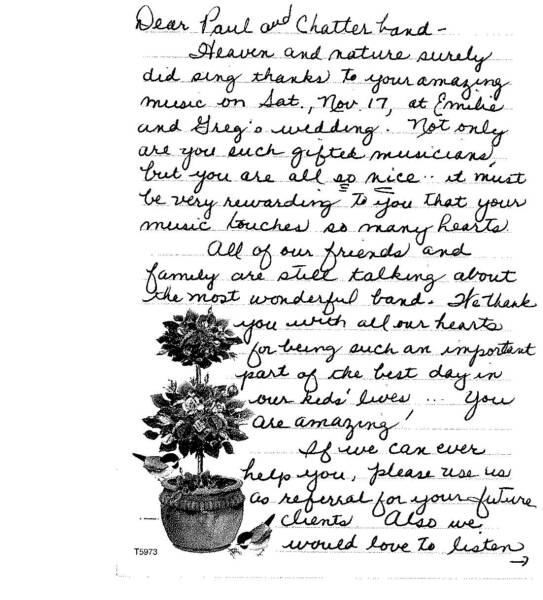 Dear Paul and Chatterband -
Heaven and nature surely
did sing thanks to your amazing
music on Sat., Nov. 17, at Emilie
and Greg's wedding. Not only
are you such gifted musicians,
but you are all so nice .. it must
be very rewarding to you that your
music touches so many hearts.
All of our friends and
family are still talking about
the most wonderful band. We thank
you with all our hearts
for being such an important
part of the best day in
our kids' lives ... You
are amazing!
If we can ever
help you, please use us
as referral for your future
clients Also we
would love to listen
→
T5973